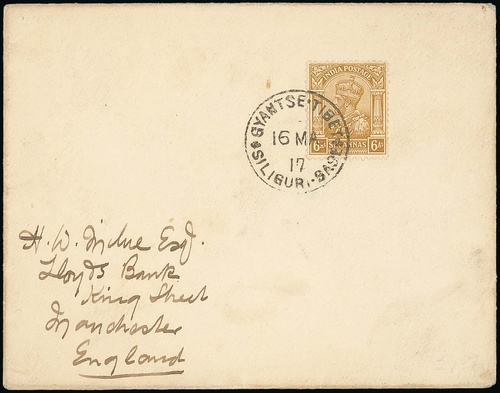 INDIA POSTAGE
6As SIX ANNAS 6As
GYANTSE·TIBET
16 MA
17
SILIGURI-BASE
H. W. Esq.
Lloyds Bank
King Street
Manchester
England